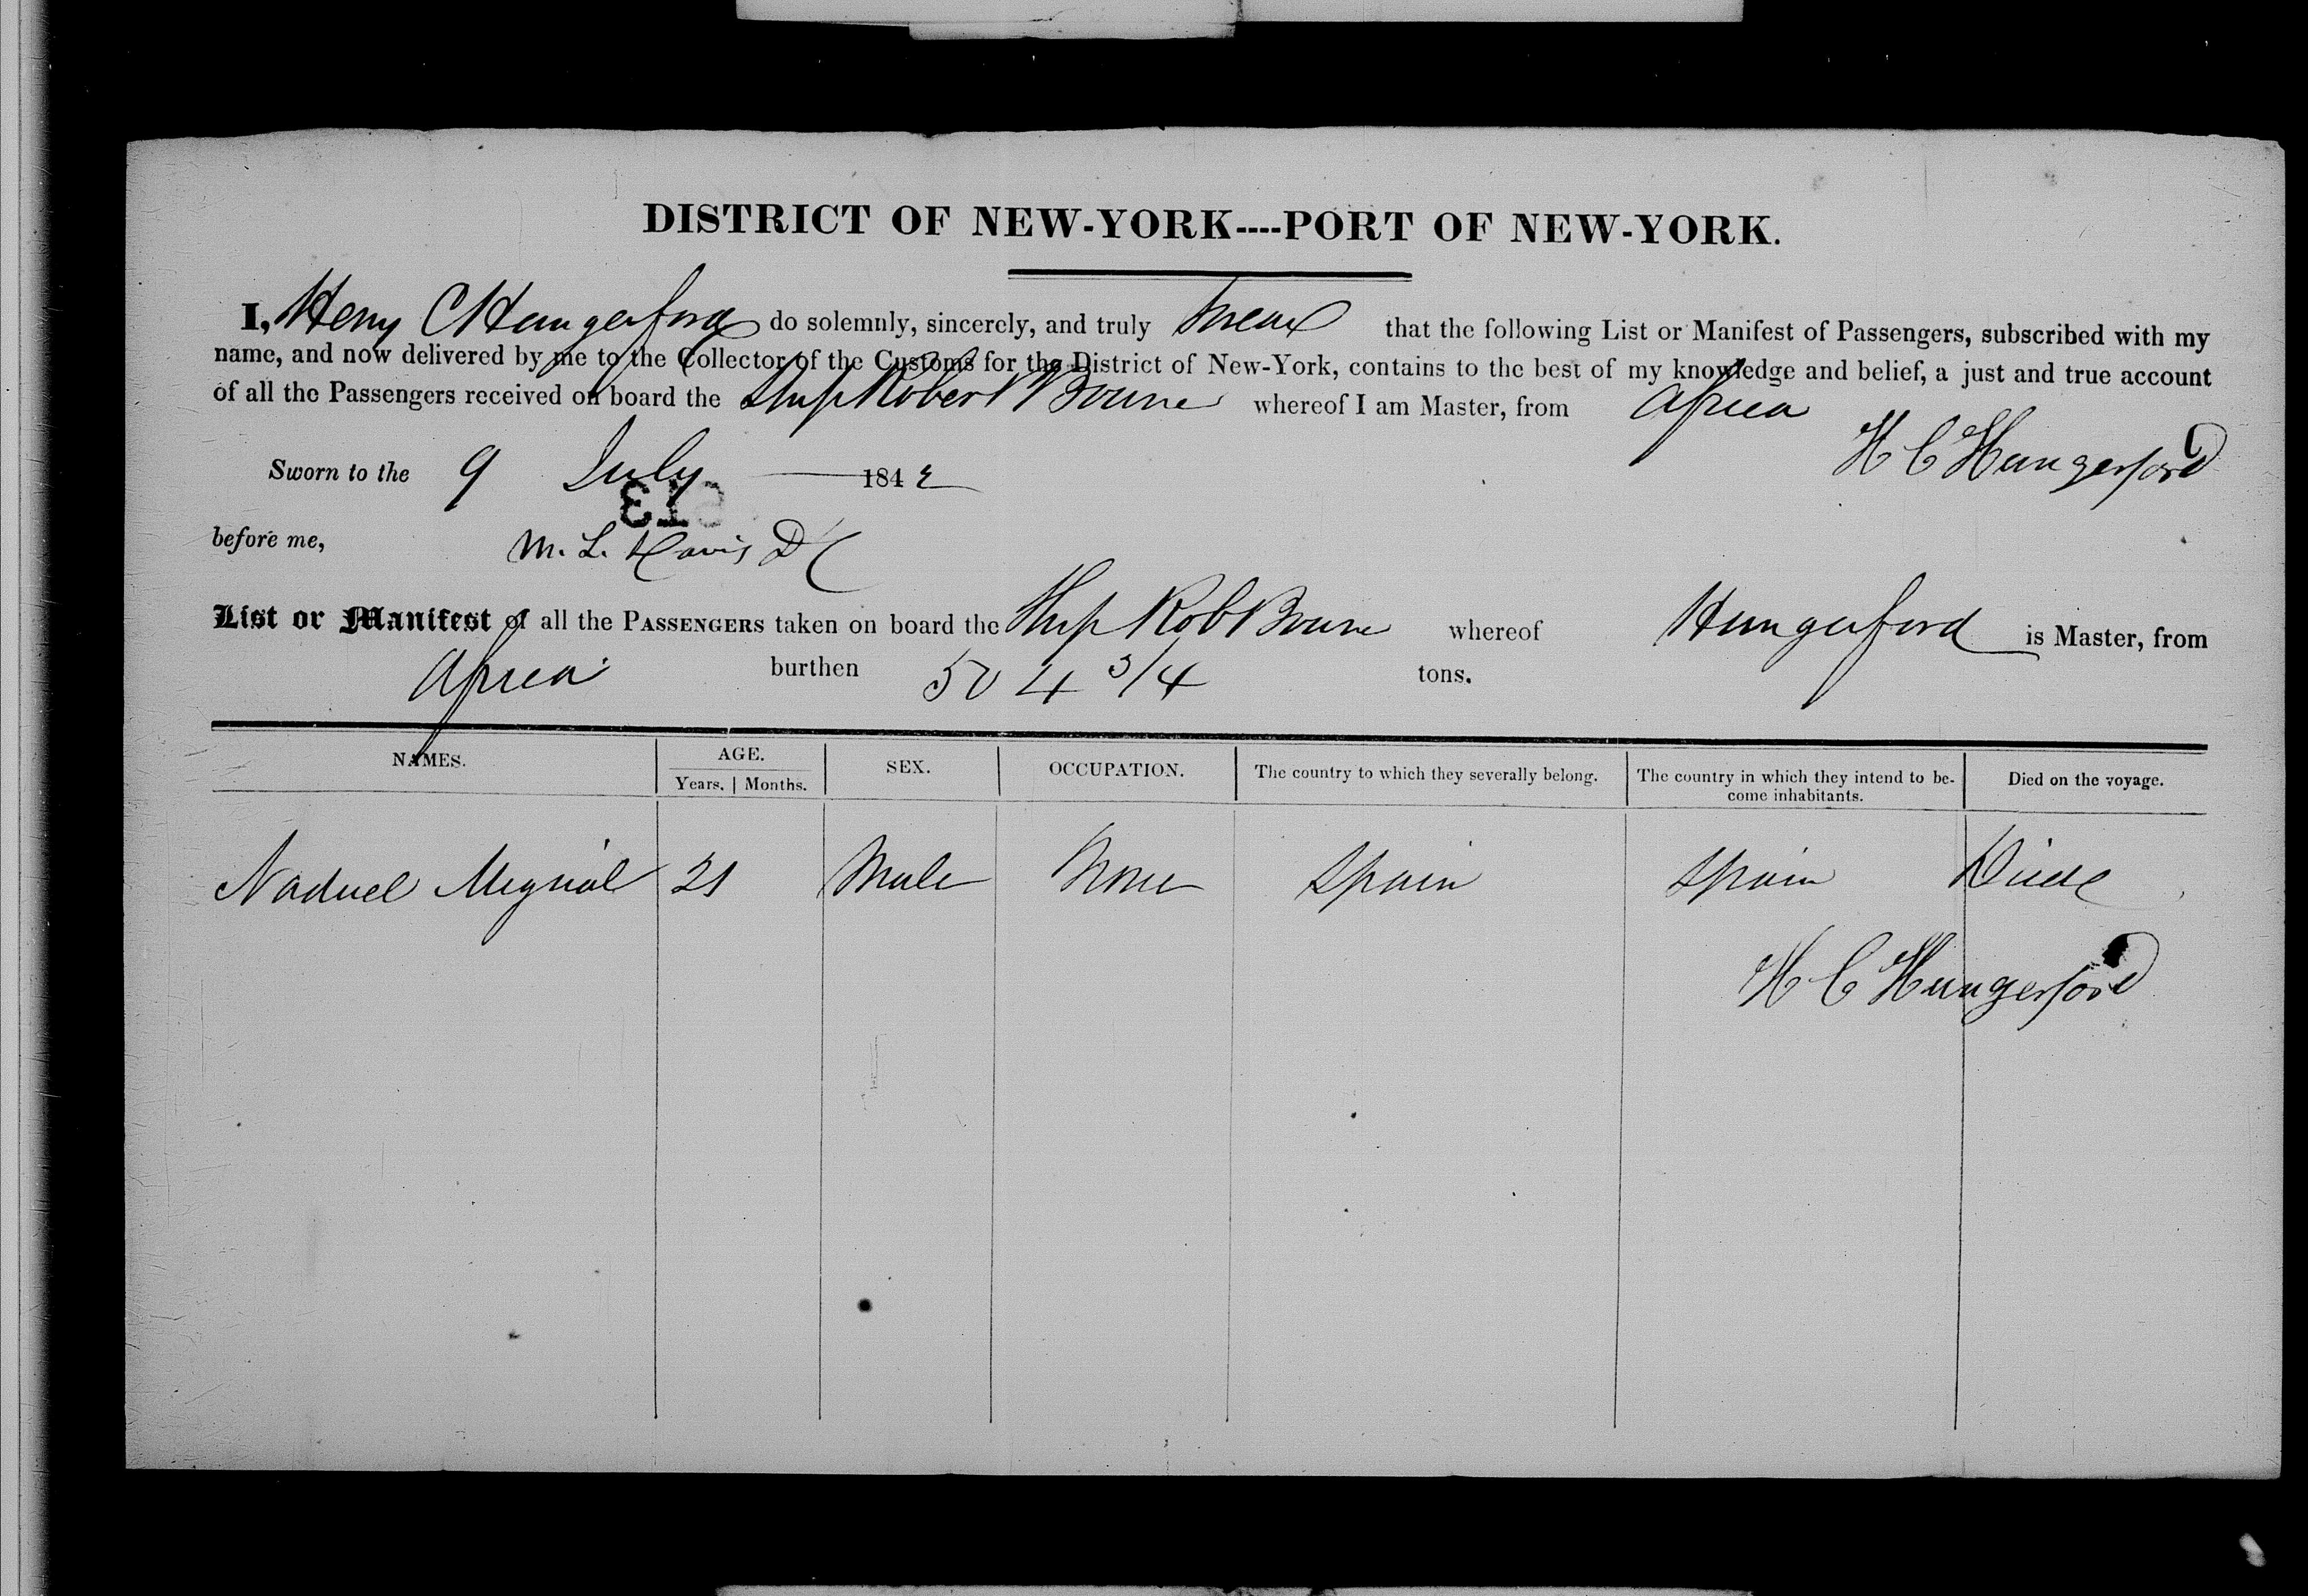 DISTRICT OF NEW-YORK----PORT OF NEW-YORK.
I, Henry C Hungerford do solemnly, sincerely, and truly swear that the following List or Manifest of Passengers, subscribed with my
name, and now delivered by me to the Collector of the Customs for the District of New-York, contains to the best of my knowledge and belief, a just and true account
of all the Passengers received on board the Ship Robert Bourne whereof I am Master, from Africa
H C Hungerford
Sworn to the 9 July 1842
613
before me, M. L. Davis D C
List or Manifest of all the PASSENGERS taken on board the Ship Robt Bourne whereof Hungerford is Master, from
Africa burthen 504 3/4 tons.
NAMES. AGE. SEX. OCCUPATION. The country to which they severally belong. The country in which they intend to be- Died on the voyage.
Years. | Months. come inhabitants.
21 Male None Spain Spain Died
H C Hungerford